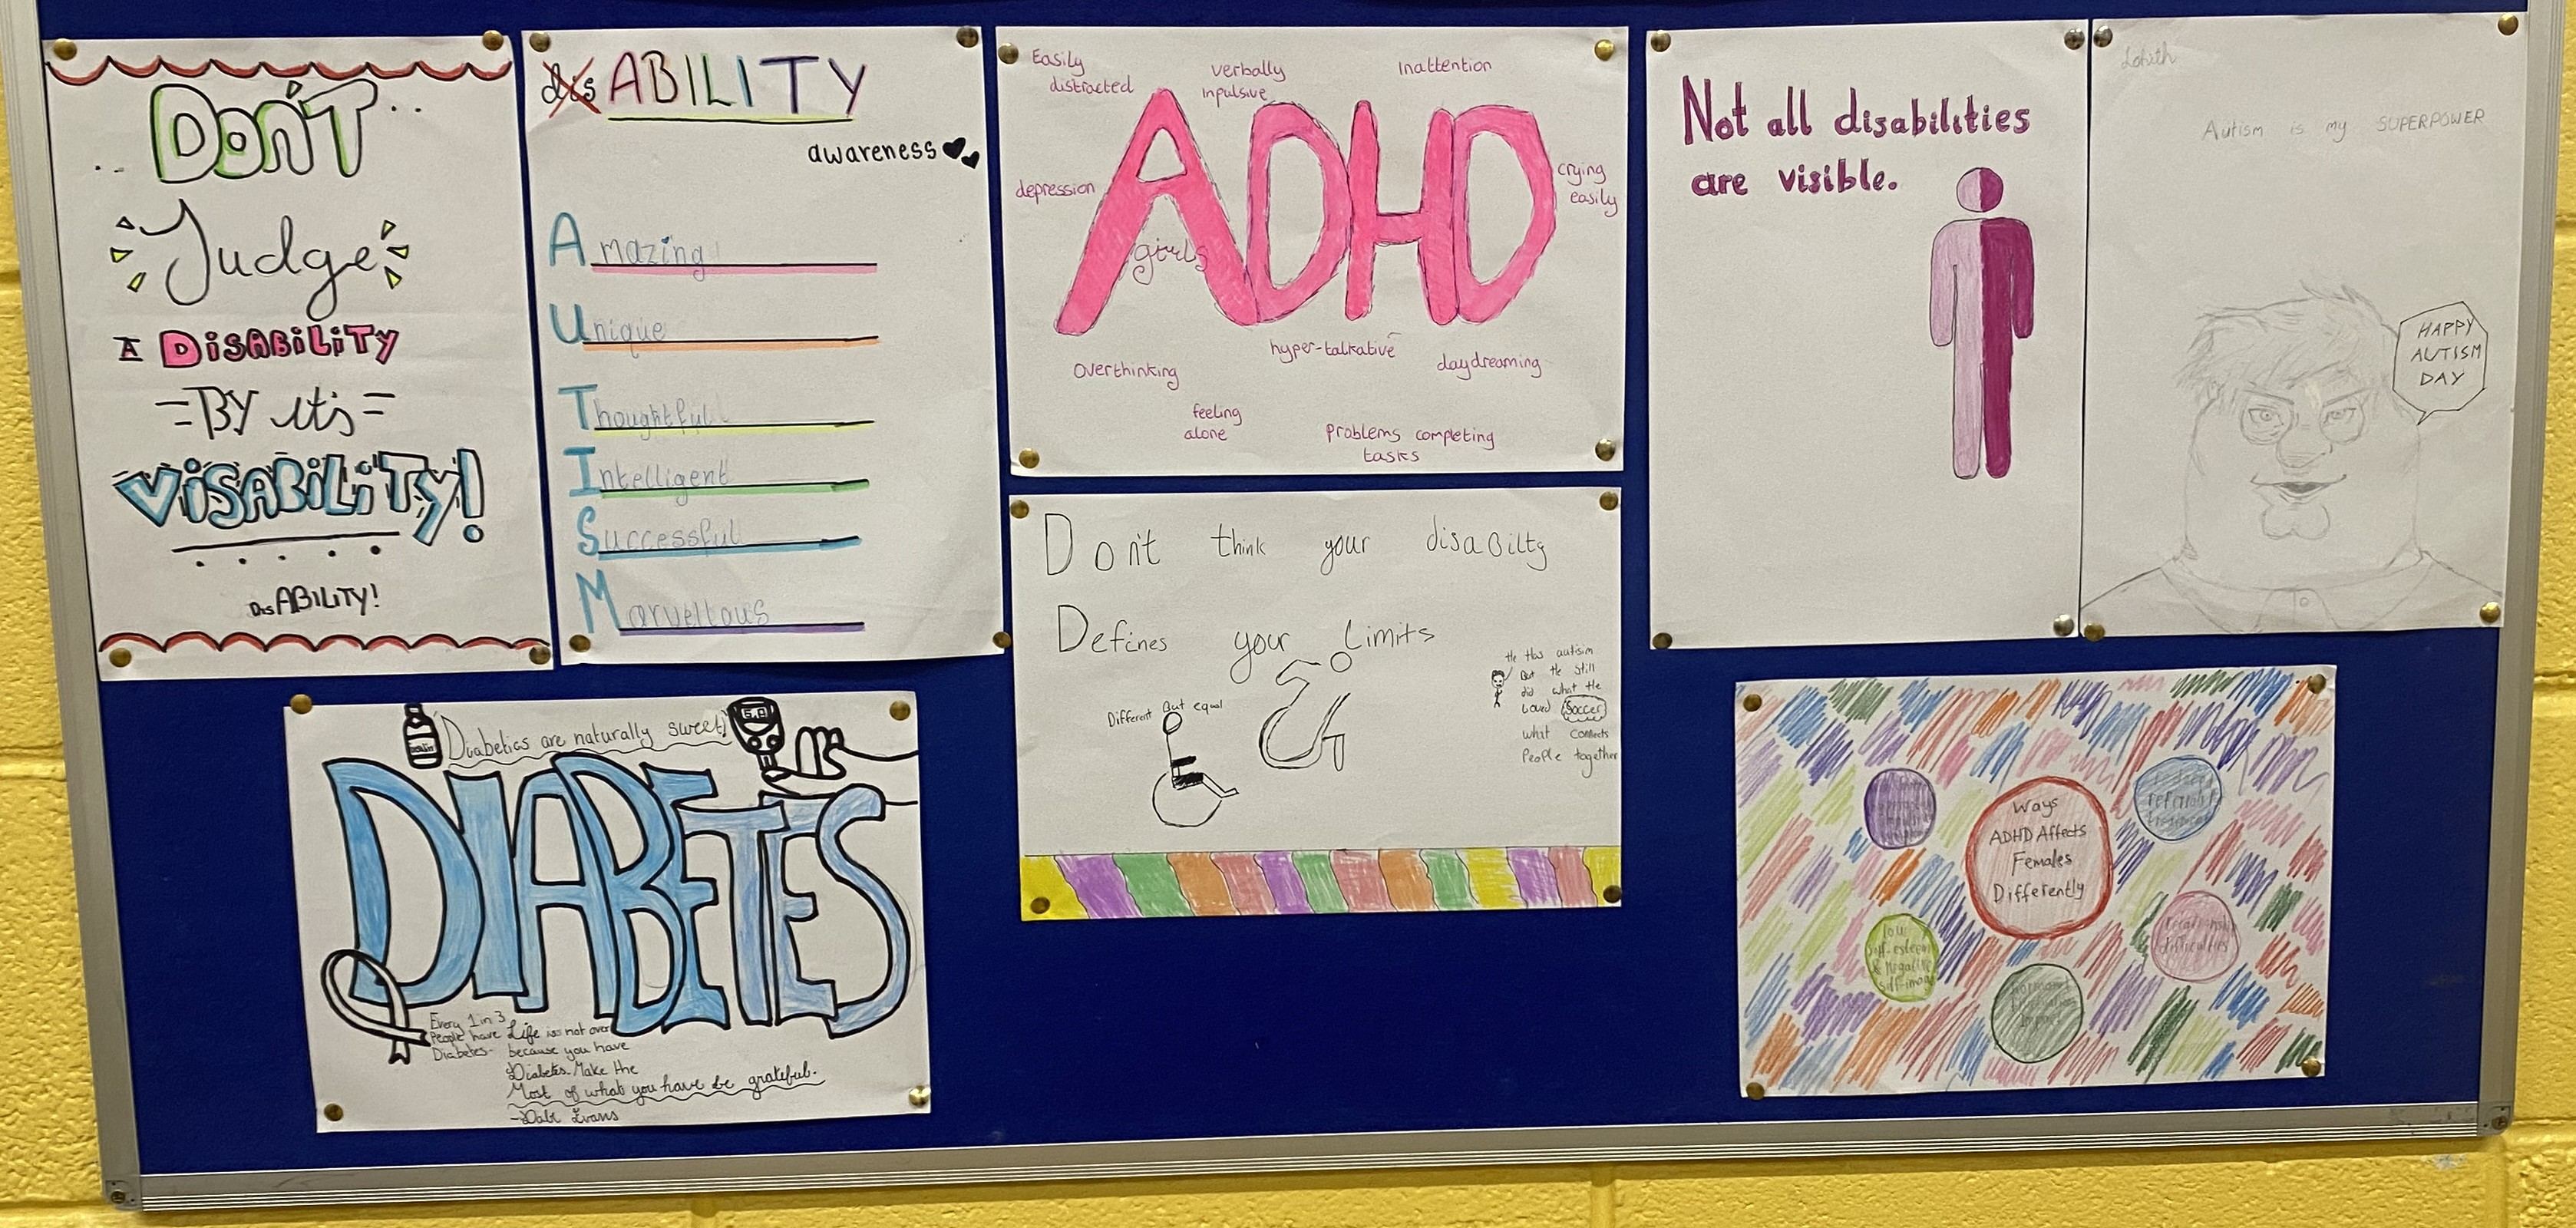 DON'T
Judge
A DISABiLiTY
=BY it's=
ViSABiLiTy!
DisABILITY!
dis ABILITY
awareness
Amazing
Unique
Thoughtful
Intelligent
Successful
Marvellous
Easily
distracted
verbally
inpulsive
Inattention
depression
ADHD
girls
crying
easily
Overthinking
hyper-talkative
daydreaming
feeling
alone
problems completing
tasks
Not all disabilities
are visible.
Lohith
Autism is my SUPERPOWER
HAPPY
AUTISM
DAY
Don't think your disaBilty
Defines your Limits
Different But equal
He Has autism
But He still
did what He
Loved Soccer
what connects
People together
Diabetics are naturally sweet
insulin
DIABETES
Every 1 in 3
People have
Diabetes-
Life is not over
because you have
Diabetes. Make the
Most of what you have be grateful.
-Dale Evans
Ways
ADHD Affects
Females
Differently
low
self-esteem
& negative
self-image
relationship
difficulties